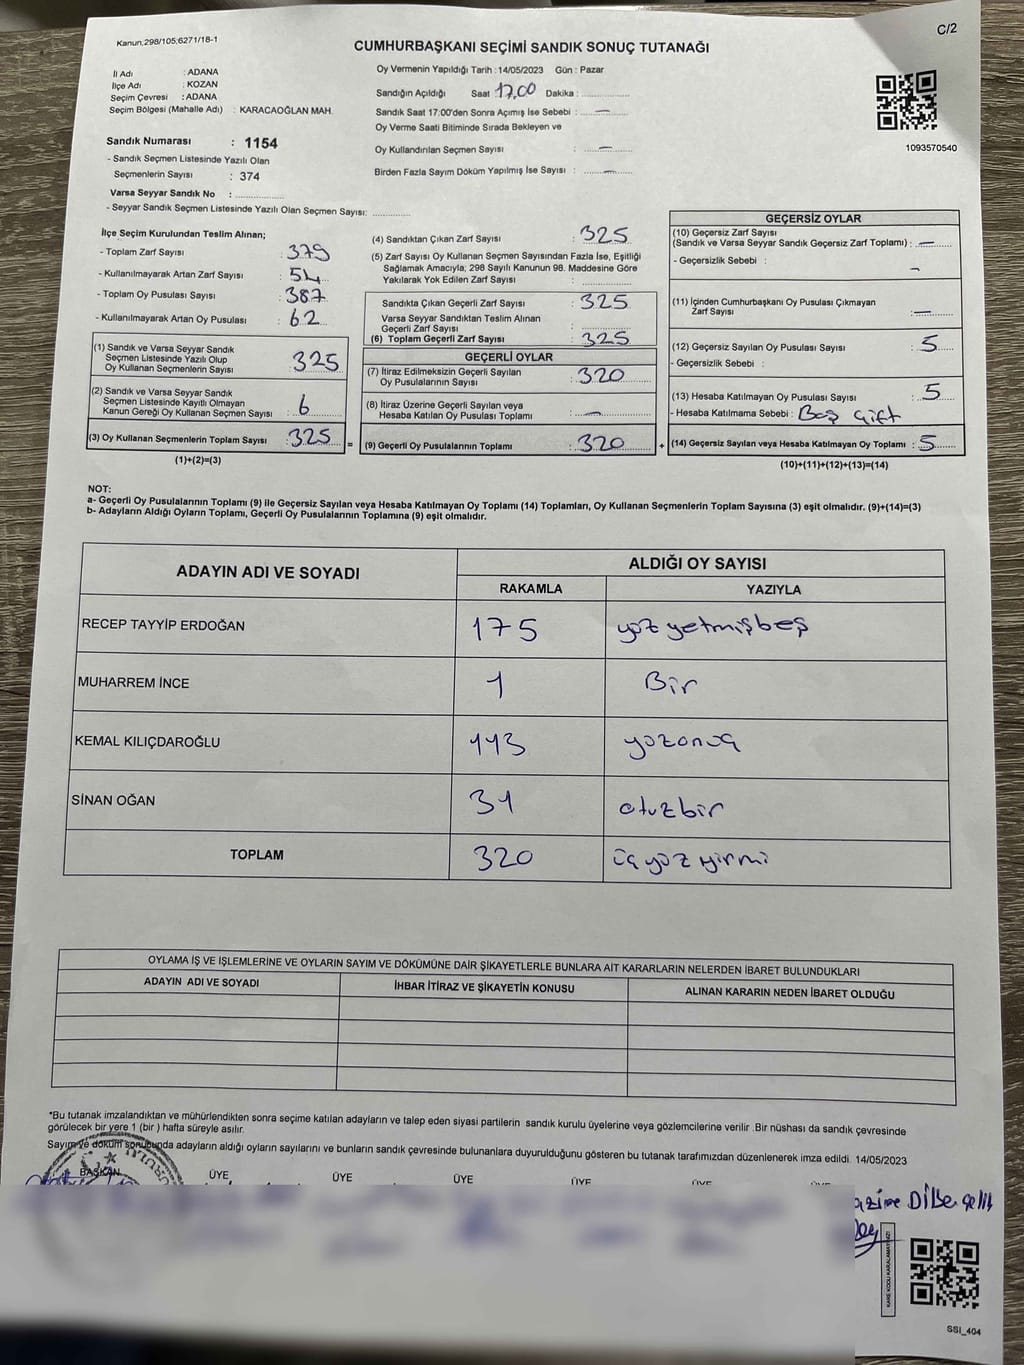 Kanun,298/105;6271/18-1
C/2
CUMHURBAŞKANI SEÇİMİ SANDIK SONUÇ TUTANAĞI
İl Adı : ADANA
İlçe Adı : KOZAN
Seçim Çevresi : ADANA
Seçim Bölgesi (Mahalle Adı) : KARACAOĞLAN MAH.
Sandık Numarası : 1154
- Sandık Seçmen Listesinde Yazılı Olan
Seçmenlerin Sayısı : 374
Varsa Seyyar Sandık No :
- Seyyar Sandık Seçmen Listesinde Yazılı Olan Seçmen Sayısı:
Oy Vermenin Yapıldığı Tarih : 14/05/2023 Gün : Pazar
Sandığın Açıldığı Saat 17,00 Dakika :
Sandık Saat 17:00'den Sonra Açımış İse Sebebi : —
Oy Verme Saati Bitiminde Sırada Bekleyen ve
Oy Kullandırılan Seçmen Sayısı : —
Birden Fazla Sayım Döküm Yapılmış İse Sayısı : —
1093570540
İlçe Seçim Kurulundan Teslim Alınan;
- Toplam Zarf Sayısı : 379
- Kullanılmayarak Artan Zarf Sayısı : 54
- Toplam Oy Pusulası Sayısı : 387
- Kullanılmayarak Artan Oy Pusulası : 62
(1) Sandık ve Varsa Seyyar Sandık
Seçmen Listesinde Yazılı Olup
Oy Kullanan Seçmenlerin Sayısı : 325
(2) Sandık ve Varsa Seyyar Sandık
Seçmen Listesinde Kayıtlı Olmayan
Kanun Gereği Oy Kullanan Seçmen Sayısı : 6
(3) Oy Kullanan Seçmenlerin Toplam Sayısı : 325 =
(1)+(2)=(3)
(4) Sandıktan Çıkan Zarf Sayısı : 325
(5) Zarf Sayısı Oy Kullanan Seçmen Sayısından Fazla İse, Eşitliği
Sağlamak Amacıyla; 298 Sayılı Kanunun 98. Maddesine Göre
Yakılarak Yok Edilen Zarf Sayısı :
Sandıkta Çıkan Geçerli Zarf Sayısı : 325
Varsa Seyyar Sandıktan Teslim Alınan
Geçerli Zarf Sayısı :
(6) Toplam Geçerli Zarf Sayısı : 325
GEÇERLİ OYLAR
(7) İtiraz Edilmeksizin Geçerli Sayılan
Oy Pusulalarının Sayısı : 320
(8) İtiraz Üzerine Geçerli Sayılan veya
Hesaba Katılan Oy Pusulası Toplamı : —
(9) Geçerli Oy Pusulalarının Toplamı : 320 +
GEÇERSİZ OYLAR
(10) Geçersiz Zarf Sayısı
(Sandık ve Varsa Seyyar Sandık Geçersiz Zarf Toplamı) : —
- Geçersizlik Sebebi : —
(11) İçinden Cumhurbaşkanı Oy Pusulası Çıkmayan
Zarf Sayısı : —
(12) Geçersiz Sayılan Oy Pusulası Sayısı : 5
- Geçersizlik Sebebi :
(13) Hesaba Katılmayan Oy Pusulası Sayısı : 5
- Hesaba Katılmama Sebebi : Boş Çift
(14) Geçersiz Sayılan veya Hesaba Katılmayan Oy Toplamı : 5
(10)+(11)+(12)+(13)=(14)
NOT:
a- Geçerli Oy Pusulalarının Toplamı (9) ile Geçersiz Sayılan veya Hesaba Katılmayan Oy Toplamı (14) Toplamları, Oy Kullanan Seçmenlerin Toplam Sayısına (3) eşit olmalıdır. (9)+(14)=(3)
b- Adayların Aldığı Oyların Toplamı, Geçerli Oy Pusulalarının Toplamına (9) eşit olmalıdır.
ADAYIN ADI VE SOYADI
ALDIĞI OY SAYISI
RAKAMLA YAZIYLA
RECEP TAYYİP ERDOĞAN 175 yüz yetmişbeş
MUHARREM İNCE 1 Bir
KEMAL KILIÇDAROĞLU 113 yüzonüç
SİNAN OĞAN 31 otuzbir
TOPLAM 320 üçyüz yirmi
OYLAMA İŞ VE İŞLEMLERİNE VE OYLARIN SAYIM VE DÖKÜMÜNE DAİR ŞİKAYETLERLE BUNLARA AİT KARARLARIN NELERDEN İBARET BULUNDUKLARI
ADAYIN ADI VE SOYADI İHBAR İTİRAZ VE ŞİKAYETİN KONUSU ALINAN KARARIN NEDEN İBARET OLDUĞU
*Bu tutanak imzalandıktan ve mühürlendikten sonra seçime katılan adayların ve talep eden siyasi partilerin sandık kurulu üyelerine veya gözlemcilerine verilir .Bir nüshası da sandık çevresinde
görülecek bir yere 1 (bir ) hafta süreyle asılır.
Sayım ve döküm sonucunda adayların aldığı oyların sayılarını ve bunların sandık çevresinde bulunanlara duyurulduğunu gösteren bu tutanak tarafımızdan düzenlenerek imza edildi. 14/05/2023
BAŞKAN ÜYE ÜYE ÜYE ÜYE ÜYE
KARE KODU KARALAMAYINIZ!
SSİ_404